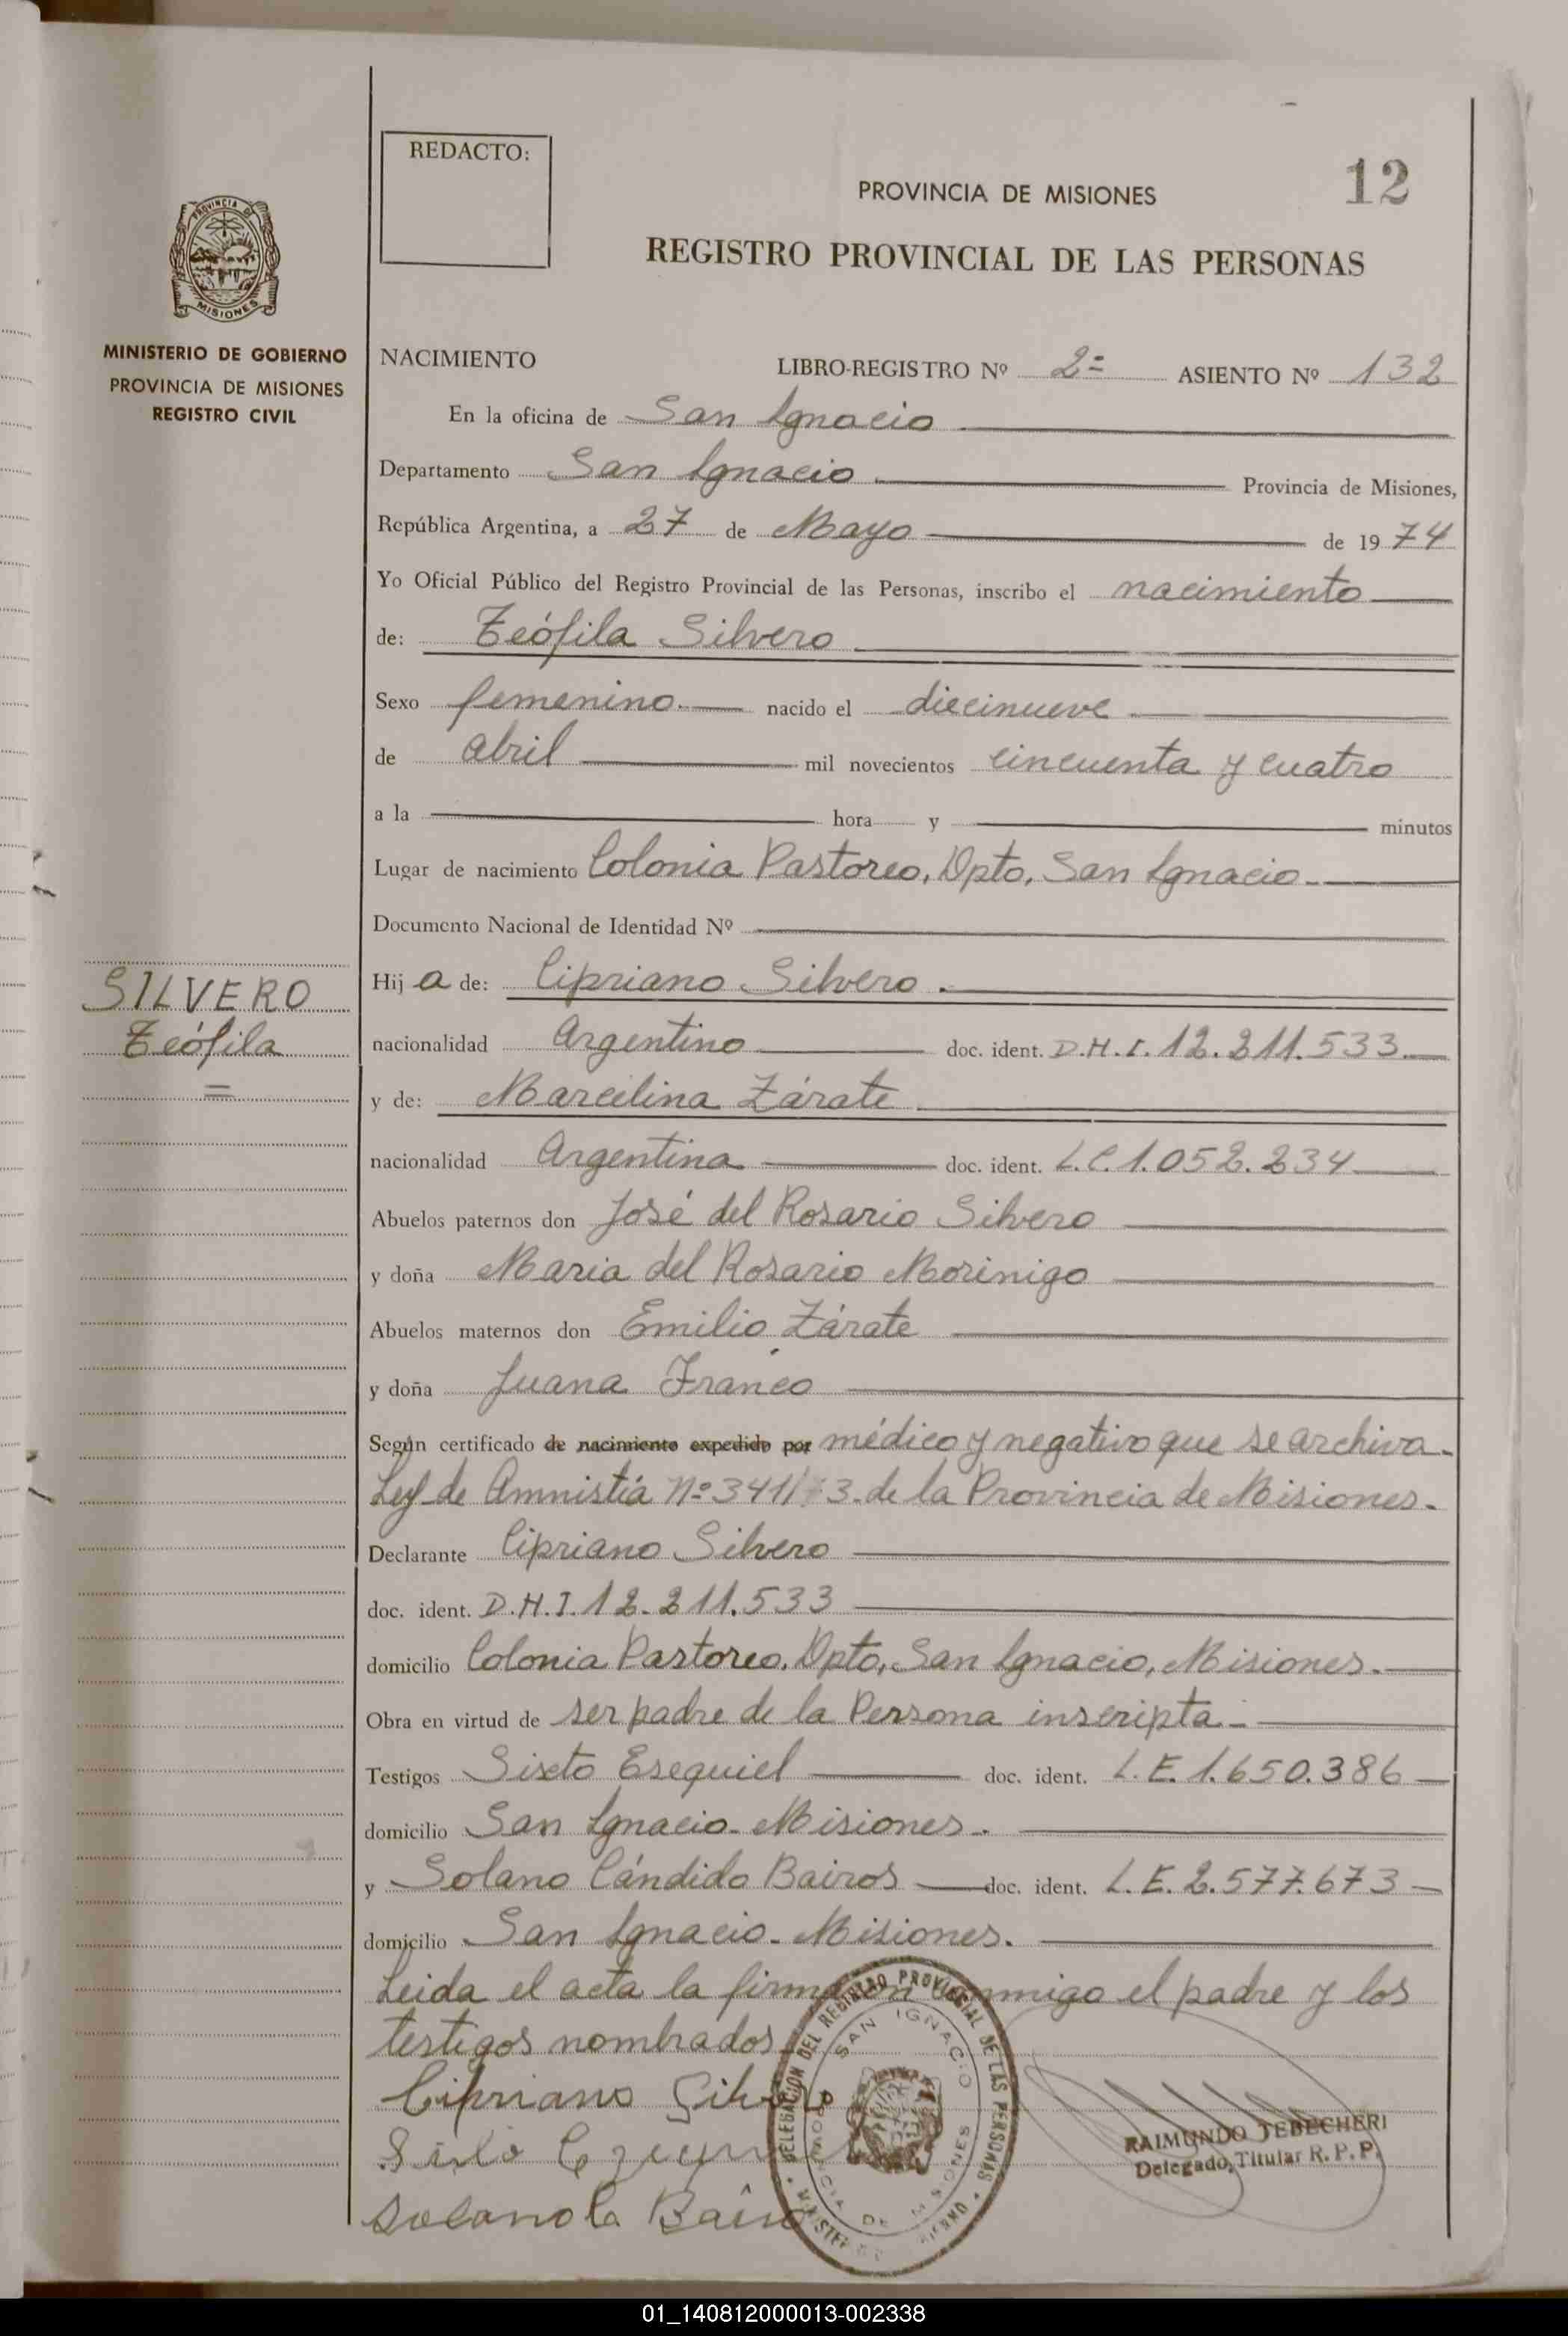 REDACTO:
PROVINCIA DE MISIONES
12
REGISTRO PROVINCIAL DE LAS PERSONAS
PROVINCIA DE
MISIONES
MINISTERIO DE GOBIERNO
PROVINCIA DE MISIONES
REGISTRO CIVIL
NACIMIENTO LIBRO-REGISTRO Nº 2= ASIENTO Nº 132
En la oficina de San Ignacio
Departamento San Ignacio Provincia de Misiones,
República Argentina, a 27 de Mayo de 1974
Yo Oficial Público del Registro Provincial de las Personas, inscribo el nacimiento
de: Teófila Silvero
Sexo femenino. nacido el diecinueve
de abril mil novecientos cincuenta y cuatro
a la hora y minutos
Lugar de nacimiento Colonia Pastoreo, Dpto. San Ignacio.
Documento Nacional de Identidad Nº
SILVERO
Teófila
Hija de: Cipriano Silvero.
nacionalidad Argentino doc. ident. D.N.I. 12.211.533
y de: Marcilina Zárate
nacionalidad Argentina doc. ident. L.C. 1.052.234
Abuelos paternos don José del Rosario Silvero
y doña Maria del Rosario Morinigo
Abuelos maternos don Emilio Zárate
y doña Juana Franco
Según certificado de nacimiento expedido por médico y negativo que se archiva.
Ley de Amnistía Nº 341/ 3. de la Provincia de Misiones.
Declarante Cipriano Silvero
doc. ident. D.N.I. 12.211.533
domicilio Colonia Pastoreo, Dpto, San Ignacio, Misiones.
Obra en virtud de ser padre de la Persona inscripta.
Testigos Sixto Esequiel doc. ident. L.E. 1.650.386
domicilio San Ignacio. Misiones.
y Solano Cándido Bairos doc. ident. L.E. 2.577.673
domicilio San Ignacio. Misiones.
Leida el acta la firman conmigo el padre y los
testigos nombrados
Cipriano Silvero
DELEGACION DEL REGISTRO PROVINCIAL DE LAS PERSONAS
SAN IGNACIO
PROVINCIA DE MISIONES
RAIMUNDO TEBECHERI
Delegado Titular R. P. P.
01_140812000013-002338